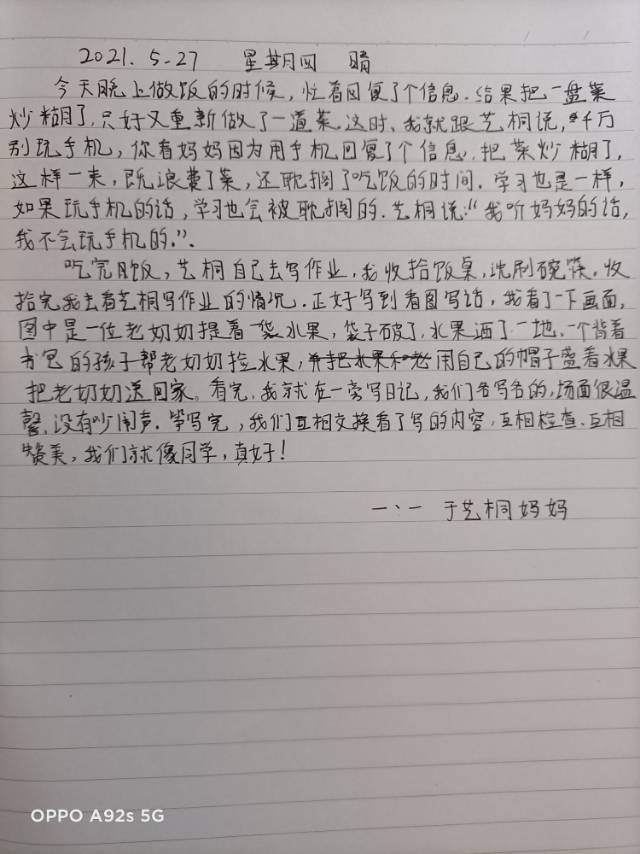 2021. 5-27 星期四 晴
今天晚上做饭的时候，忙着回复了个信息.结果把一盘菜
炒糊了，只好又重新做了一道菜.这时，我就跟艺桐说，千万
别玩手机，你看妈妈因为用手机回复了个信息，把菜炒糊了，
这样一来，既浪费了菜，还耽搁了吃饭的时间.学习也是一样，
如果玩手机的话，学习也会被耽搁的.艺桐说:“我听妈妈的话，
我不会玩手机的.”.
吃完晚饭，艺桐自己去写作业，我收拾饭桌，洗刷碗筷，收
拾完我去看艺桐写作业的情况.正好写到看图写话，我看了一下画面，
图中是一位老奶奶提着一袋水果，袋子破了，水果洒了一地，一个背着
书包的孩子帮老奶奶捡水果，并把水果和老用自己的帽子盛着水果
把老奶奶送回家。看完，我就在一旁写日记，我们各写各的，场面很温
馨，没有吵闹声.等写完，我们互相交换看了写的内容，互相检查、互相
赞美，我们就像同学，真好！
一·一 于艺桐妈妈
OPPO A92s 5G